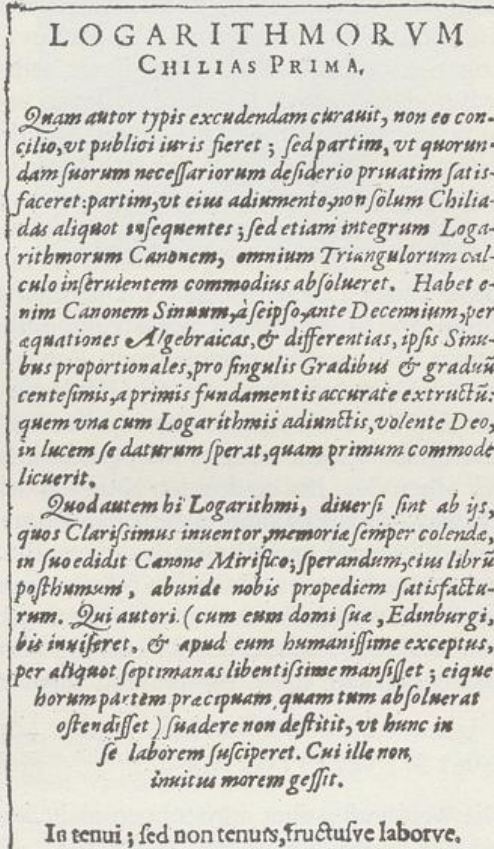 LOGARITHMORVM
CHILIAS PRIMA.
Quam autor typis excudendam curauit, non eo con-
cilio, vt publici iuris fieret ; sed partim, vt quorun-
dam suorum necessariorum desiderio priuatim satis-
faceret: partim, vt eius adiumento, non solum Chilia-
das aliquot insequentes ; sed etiam integrum Loga-
rithmorum Canonem, omnium Triangulorum cal-
culo inseruientem commodius absolueret. Habet e-
nim Canonem Sinuum, à seipso, ante Decennium, per
æquationes Algebraicas, & differentias, ipsis Sinu-
bus proportionales, pro singulis Gradibus & graduũ
centesimis, a primis fundamentis accurate extructũ:
quem vna cum Logarithmis adiunctis, volente Deo,
in lucem se daturum sperat, quam primum commode
licuerit.
Quod autem hi Logarithmi, diuersi sint ab ijs,
quos Clarissimus inuentor, memoriæ semper colendæ,
in suo edidit Canone Mirifico; sperandum, eius librũ
posthumum, abunde nobis propediem satisfactu-
rum. Qui autori (cum eum domi suæ, Edinburgi,
bis inuiseret, & apud eum humanissime exceptus,
per aliquot septimanas libentissime mansisset ; eique
horum partem præcipuam quam tum absoluerat
ostendisset ) suadere non destitit, vt hunc in
se laborem susciperet. Cui ille non,
inuitus morem gessit.
In tenui ; sed non tenuis, fructusve laborve.